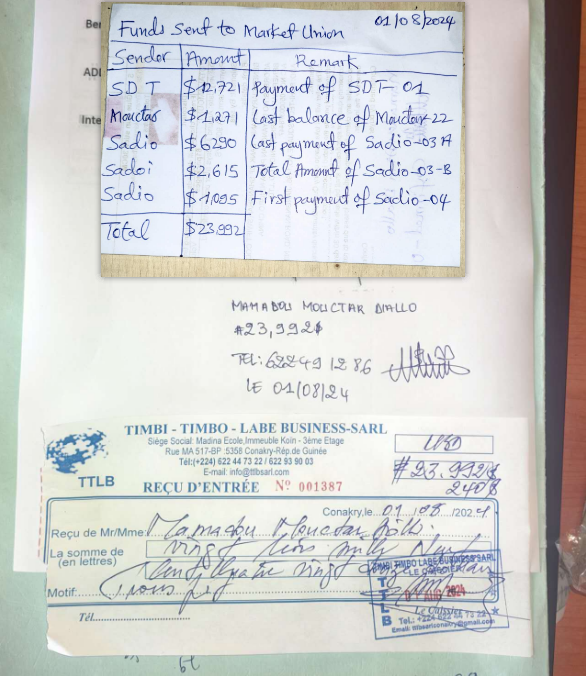 Ber
ADI
Inte
Funds Sent to Market Union 01/08/2024
Sender Amount Remark
SDT $12,721 Payment of SDT-01
Mouctar $1,271 Last balance of Mouctar-22
Sadio $6290 Last payment of Sadio-03A
Sadoi $2,615 Total Amount of Sadio-03-B
Sadio $1,095 First payment of Sadio-04
Total $23,992
MAMADOU MOUCTAR DIALLO
#23,992$
TEL: 622491286
LE 01/08/24
TIMBI - TIMBO - LABE BUSINESS-SARL
Siége Social: Madina Ecole,Immeuble Koïn - 3éme Etage
Rue MA 517-BP :5358 Conakry-Rép.de Guinée
Tél:(+224) 622 44 73 22 / 622 93 90 03
Email: info@ttbsarl.com
TTLB
REÇU D'ENTRÉE Nº 001387
USD
#23.992$
240$
Conakry,le 01/08/2024
Reçu de Mr/Mme: Mamadou Mouctar
La somme de
(en lettres)
vingt trois mille
Motif:
Tél
TIMBI TIMBO LABE BUSINESS-SARL
LE CAISSIER
TTLB
AUG 2024
Le Caissier
Tel.: +224 622 44 73 22
Email: ttbsarlconakry@gmail.com